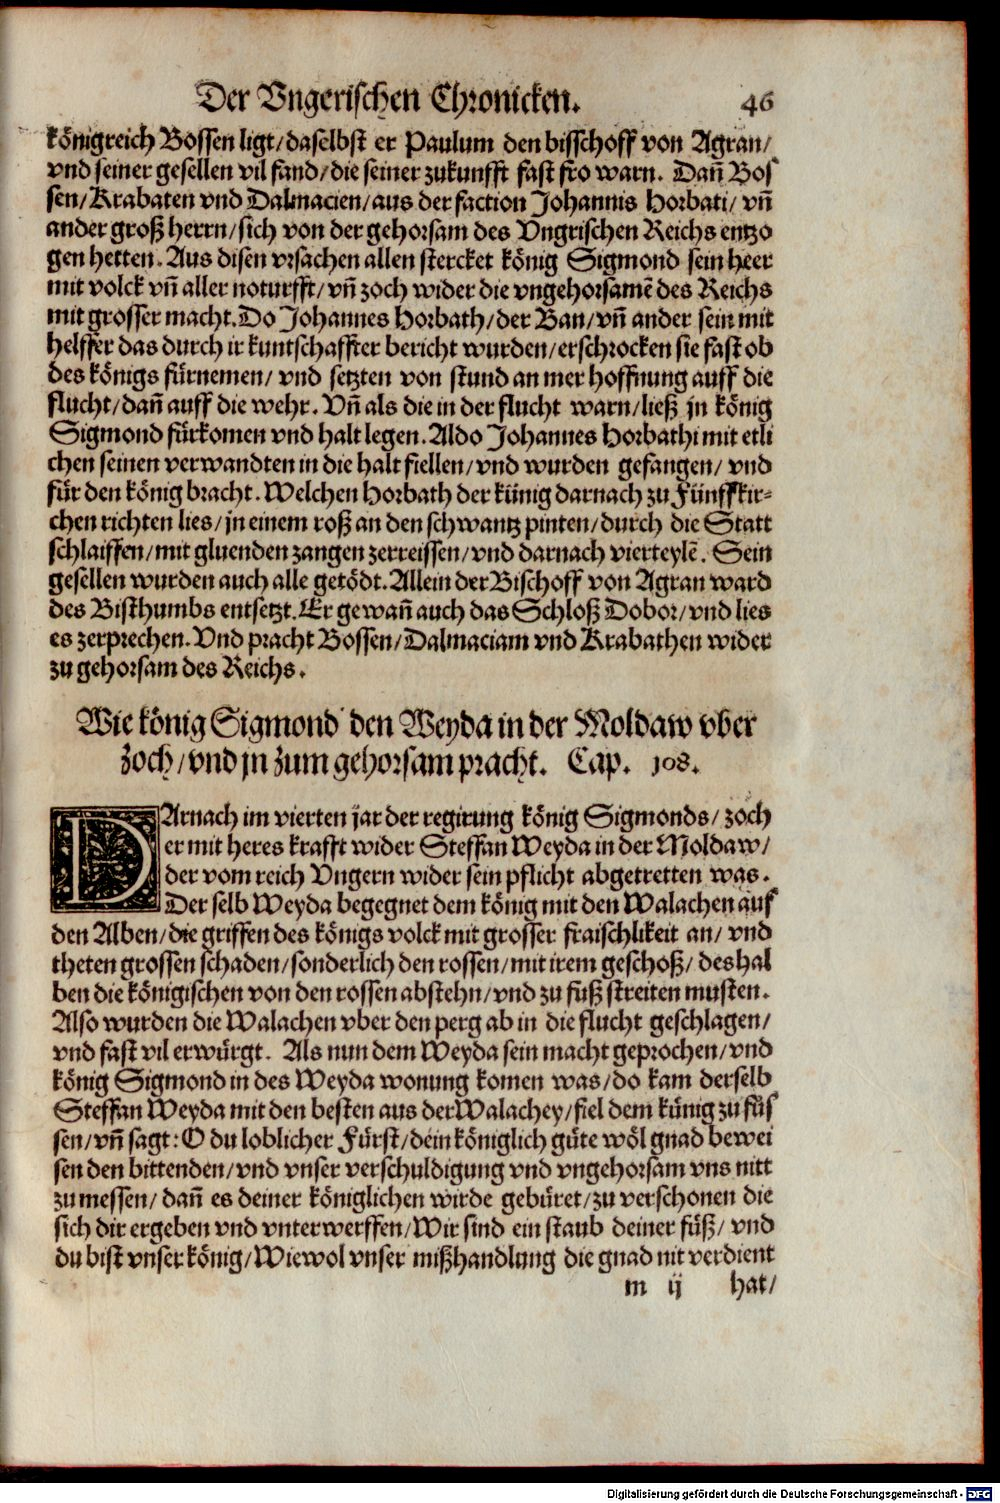 Der Vngerischen Chronicken. 46
königreich Bossen ligt/ daselbst er Paulum den bisschoff von Agran/
vnd seiner gesellen vil fand/ die seiner zukunfft fast fro warn. Dañ Bos
sen/ Krabaten vnd Dalmacien/ aus der faction Johannis Horbati/ vñ
ander groß herrn/ sich von der gehorsam des Vngrischen Reichs entzo
gen hetten. Aus disen vrsachen allen stercket könig Sigmond sein heer
mit volck vñ aller noturfft/ vñ zoch wider die vngehorsamē des Reichs
mit grosser macht. Do Johannes Horbath/ der Ban/ vñ ander sein mit
helffer das durch ir kuntschaffter bericht wurden/ erschrocken sie fast ob
des königs fürnemen/ vnd setzten von stund an mer hoffnung auff die
flucht/ dañ auff die wehr. Vñ als die in der flucht warn/ ließ jn könig
Sigmond fürkomen vnd halt legen. Aldo Johannes Horbathi mit etli
chen seinen verwandten in die halt fiellen/ vnd wurden gefangen/ vnd
für den könig bracht. Welchen Horbath der künig darnach zu Fünffkir-
chen richten lies/ jn einem roß an den schwantz pinten/ durch die Statt
schlaiffen/ mit gluenden zangen zerreissen/ vnd darnach vierteylē. Sein
gesellen wurden auch alle getödt. Allein der Bischoff von Agran ward
des Bisthumbs entsetzt. Er gewañ auch das Schloß Dobor/ vnd lies
es zerprechen. Vnd pracht Bossen/ Dalmaciam vnd Krabathen wider
zu gehorsam des Reichs.
Wie könig Sigmond den Weyda in der Moldaw vber
zoch/ vnd jn zum gehorsam pracht. Cap. 108.
DArnach im vierten jar der regirung könig Sigmonds/ zoch
er mit heres krafft wider Steffan Weyda in der Moldaw/
der vom reich Vngern wider sein pflicht abgetretten was.
Der selb Weyda begegnet dem könig mit den Walachen auf
den Alben/ die griffen des königs volck mit grosser fraischlikeit an/ vnd
theten grossen schaden/ sonderlich den rossen/ mit irem geschoß/ deshal
ben die königischen von den rossen abstehn/ vnd zu fuß streiten musten.
Also wurden die Walachen vber den perg ab in die flucht geschlagen/
vnd fast vil erwürgt. Als nun dem Weyda sein macht geprochen/ vnd
könig Sigmond in des Weyda wonung komen was/ do kam derselb
Steffan Weyda mit den besten aus der Walachey/ fiel dem künig zu füs
sen/ vñ sagt: O du loblicher Fürst/ dein königlich güte wöl gnad bewei
sen den bittenden/ vnd vnser verschuldigung vnd vngehorsam vns nitt
zu messen/ dañ es deiner königlichen wirde gebüret/ zu verschonen die
sich dir ergeben vnd vnterwerffen/ Wir sind ein staub deiner füß/ vnd
du bist vnser könig/ Wiewol vnser mißhandlung die gnad nit verdient
m ij hat/
Digitalisierung gefördert durch die Deutsche Forschungsgemeinschaft - DFG